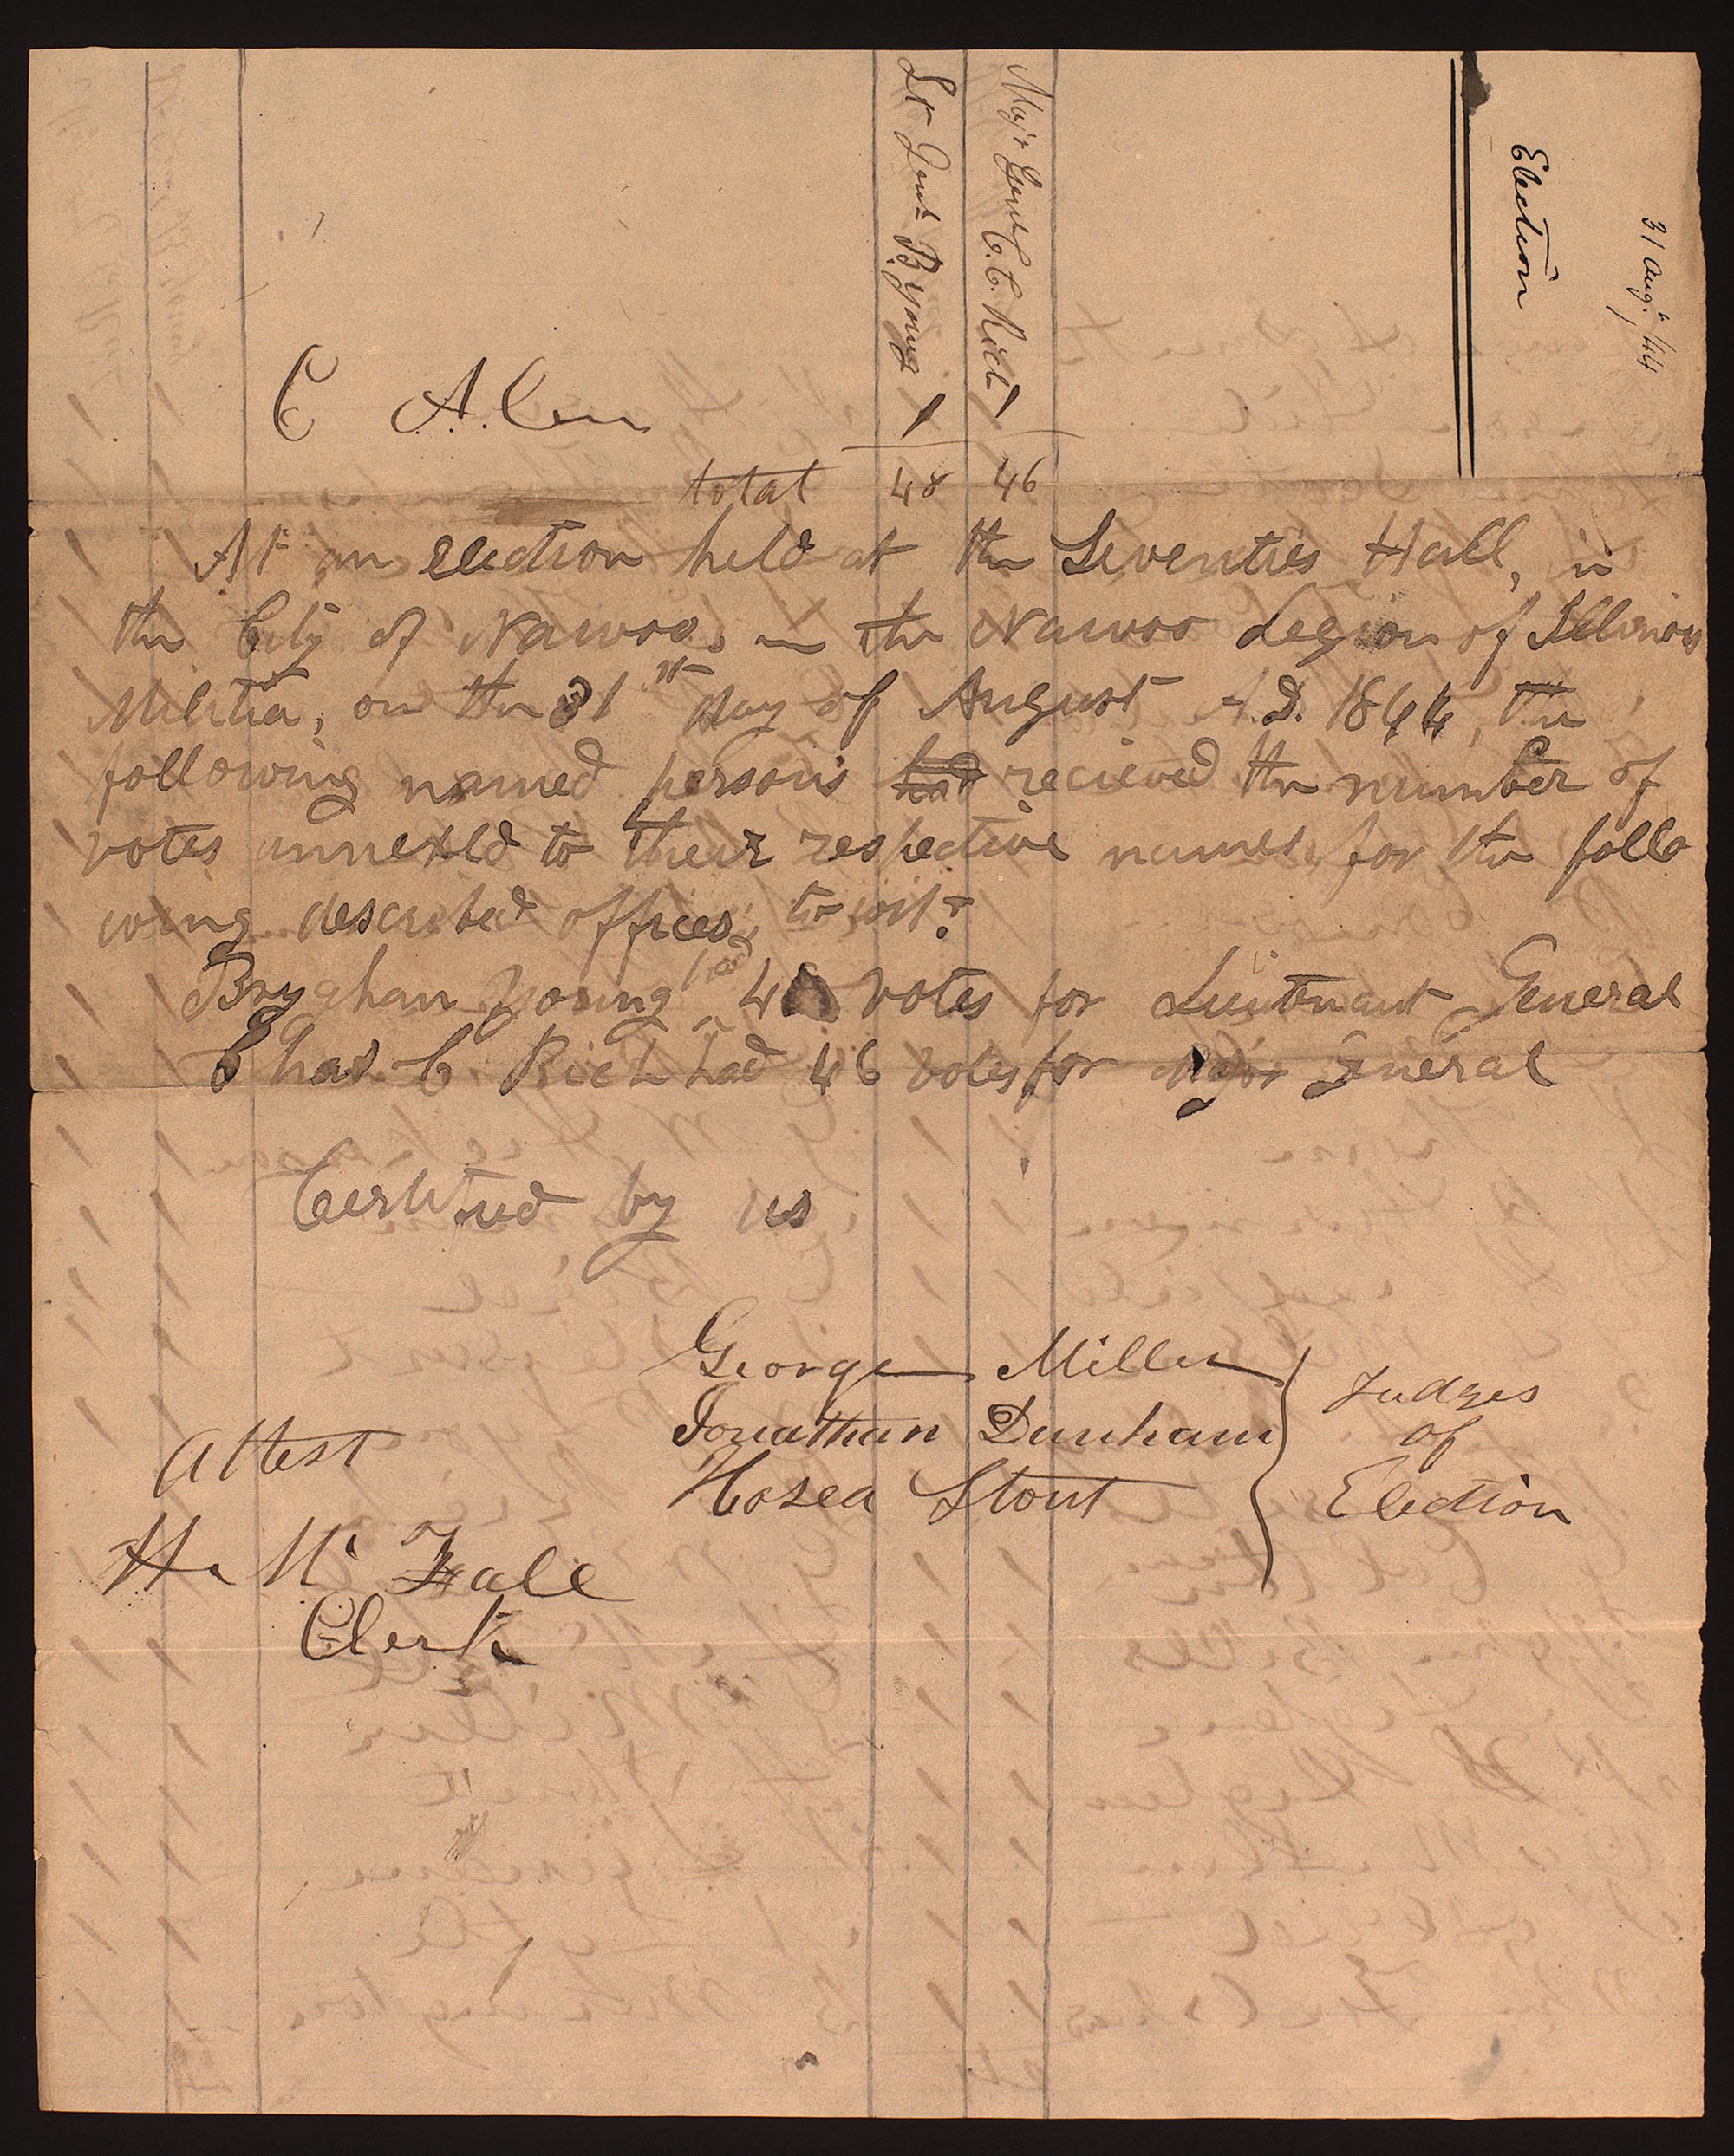 Lt Genl B Young
Maj'r Genl C. C. Rich
Election
31 Augt, /44
C A. 1 1
total 48 46
At an election held at the Seventies Hall, in
the City of Nauvoo, in the Nauvoo Legion of Illinois
Militia, on the 31st day of August A.D. 1844, the
following named persons had recieved the number of
votes annexed to their respective names, for the follo
wing described offices, to wit:
Brygham Young had 48 votes for Lieutenant General
Chas C Rich had 46 votes for Major General
Certified by us
George Miller
Jonathan Dunham
Hosea Stout
Judges
of
Election
Attest
Clerk